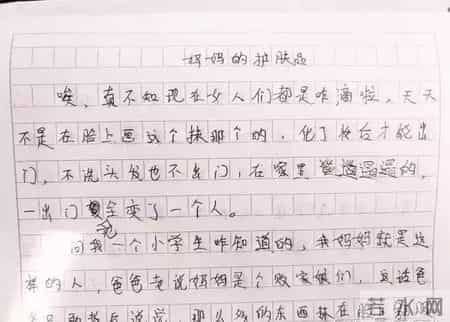 妈妈的护肤品
唉,真不知现在女人们都是咋滴啦,天天
不是在脸上画这个抹那个的,化了妆台才能出
门,不洗头发也不出门,在家里邋遢遢的,
一出门就完全变了一个人。
问我一个小学生咋知道的,我妈妈就是这
样的人,爸爸老说妈妈是个败家娘们,
那么多的东西抹在脸